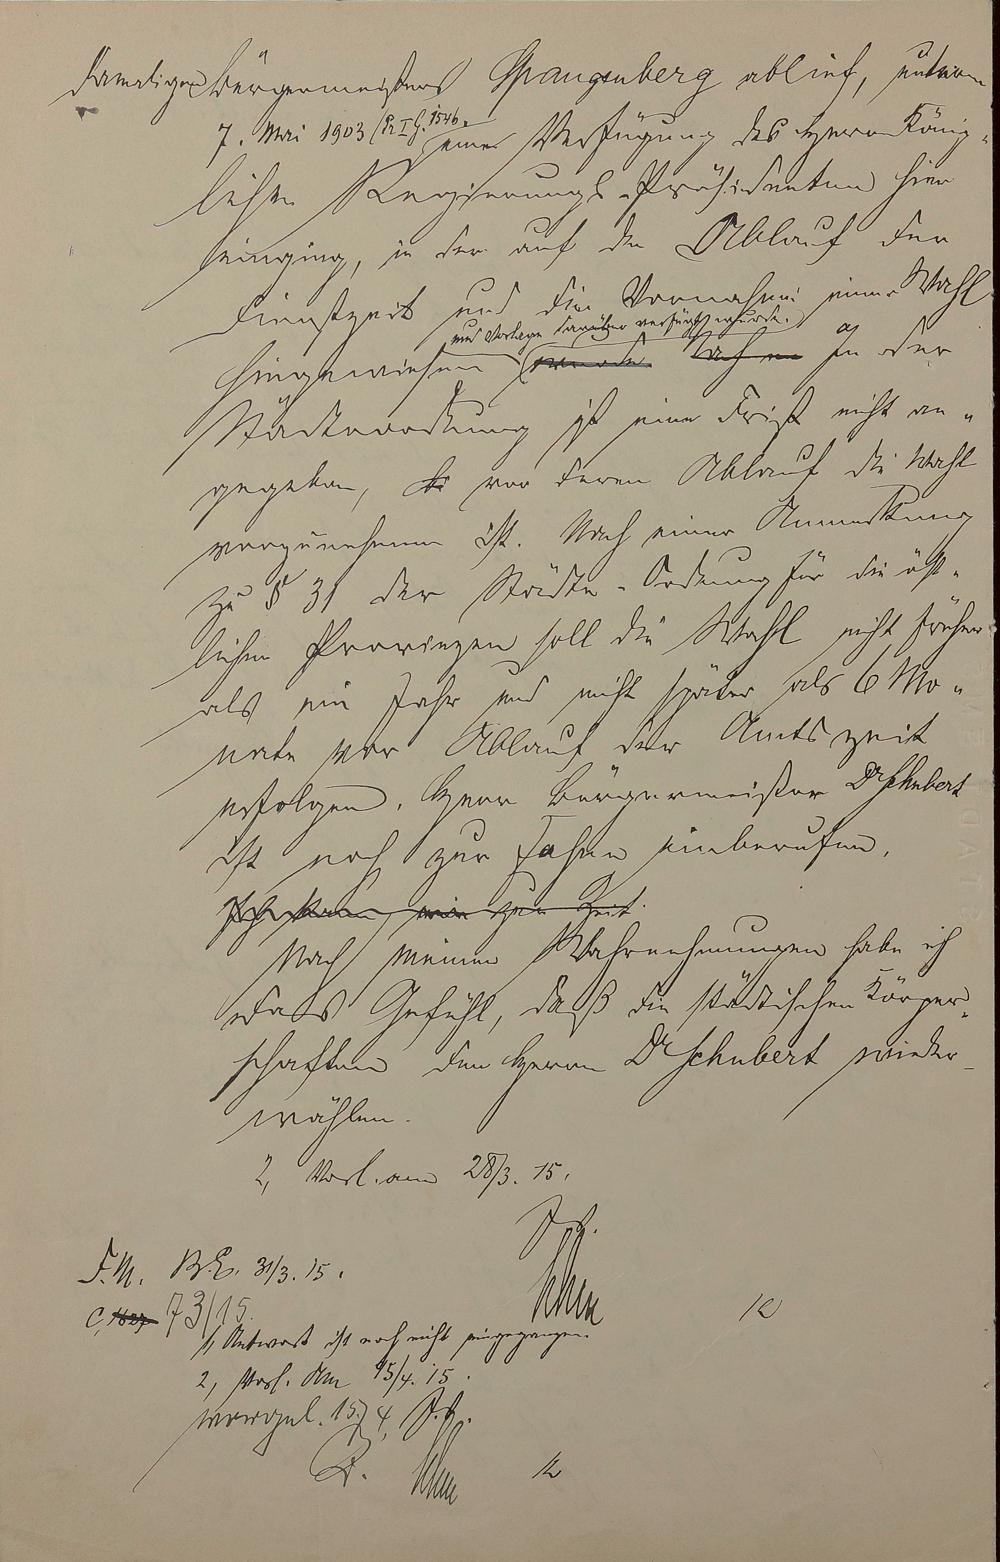 damaligen Bürgermeisters Spangenberg ablief, unterm
7. Mai 1903 (Pr. I G. 1546.) eine Verfügung des Herrn König-
lichen Regierungs-Präsidenten hier
einging, in der auf den Ablauf der
Dienstzeit und die Vornahme einer Wahl
und Vorlage darüber verfügt wurde.
hingewiesen wurde In der
Städteordnung ist eine Frist nicht an-
gegeben, vor deren Ablauf die Wahl
vorzunehmen ist. Nach einer Anmerkung
zu § 31 der Städte-Ordnung für die öst-
lichen Provinzen soll die Wahl nicht früher
als ein Jahr und nicht später als 6 Mo-
nate vor Ablauf der Amtszeit
erfolgen. Herr Bürgermeister Dr Schubert
ist noch zur Fahne einberufen.
zur Zeit
Nach meinen Wahrnehmungen habe ich
das Gefühl, daß die städtischen Körper-
schaften den Herrn Dr Schubert wieder-
wählen.
2, Vorl. am 28/3. 15.
F. M. B. E. 31/3. 15.
C, 73/15.
1, Antwort ist noch nicht eingegangen.
2, Vorl. am 15/4. 15.
vorgel. 15/4.